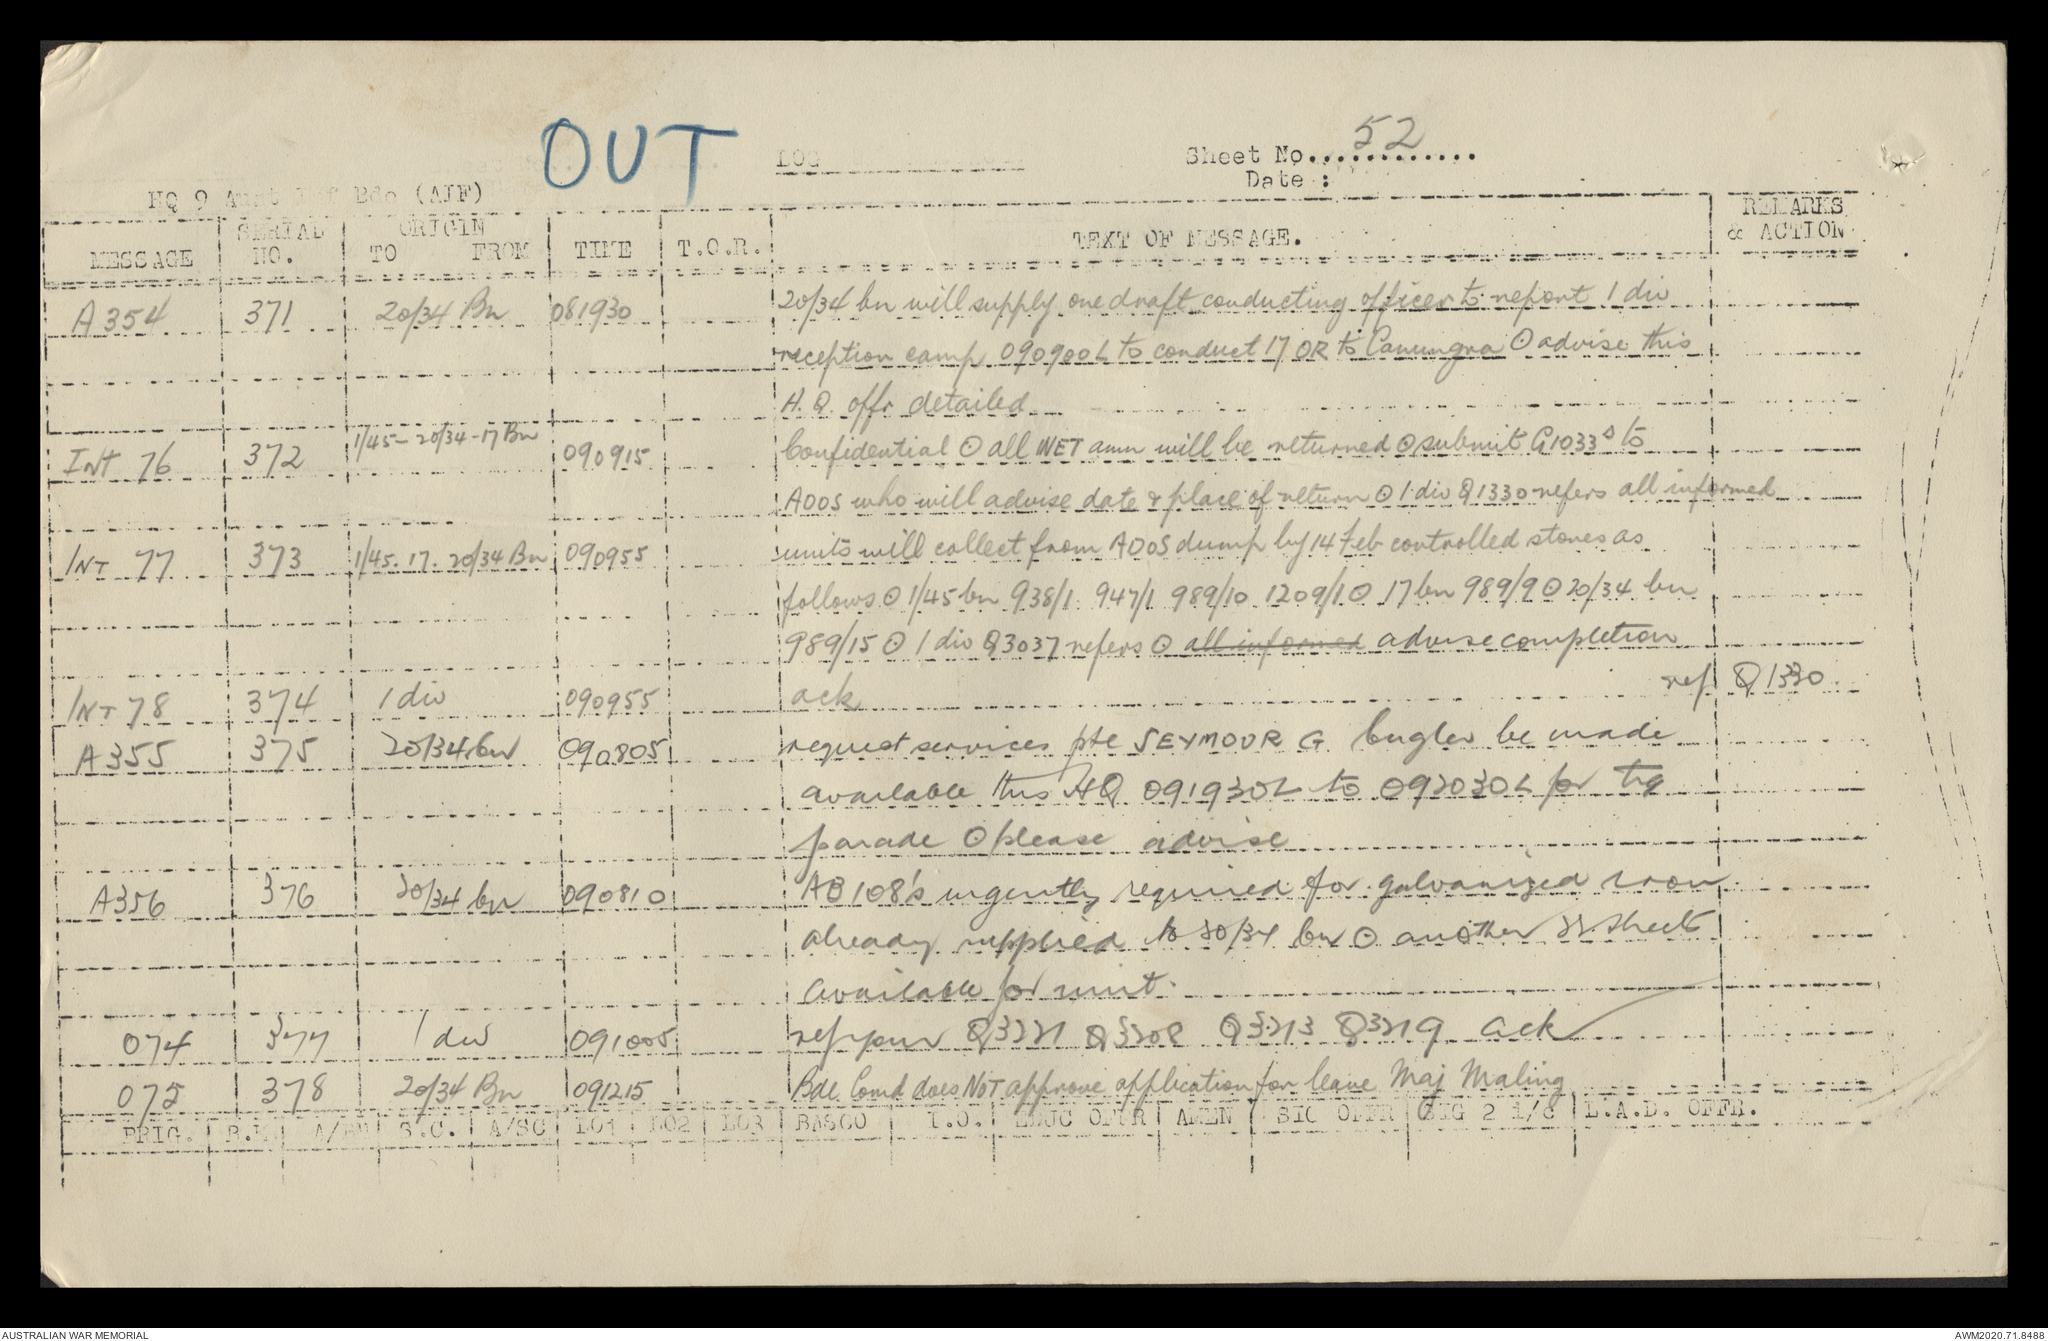 OUT
LOG
Sheet No. 52
Date :
HQ 9 Aust Inf Bde (AIF)
MESSAGE SERIAL NO. ORIGIN TO FROM TIME T.O.R. TEXT OF MESSAGE. REMARKS & ACTION
A 354 371 20/34 Bn 081930 20/34 bn will supply one draft conducting officer to report 1 div
reception camp 090900L to conduct 17 OR to Canungra ⊙ advise this
H.Q. offr detailed
INT 76 372 1/45 - 20/34 - 17 Bn 090915 Confidential ⊙ all WET amn will be returned ⊙ submit G1033s to
ADOS who will advise date & place of return ⊙ 1 div Q1330 refers all informed
INT 77 373 1/45. 17. 20/34 Bn 090955 units will collect from ADOS dump by 14 Feb controlled stores as
follows ⊙ 1/45 bn 938/1 947/1 989/10 1209/1 ⊙ 17 bn 989/9 ⊙ 20/34 bn
989/15 ⊙ 1 div Q3037 refers ⊙ all informed advise completion
INT 78 374 1 div 090955 ack ref Q1330.
A355 375 20/34 bn 090805 request services pte SEYMOUR G bugler be made
available this HQ 091930L to 092030L for trg
parade ⊙ please advise
A356 376 20/34 bn 090810 AB 108's urgently required for galvanized iron
already supplied to 20/34 bn ⊙ another 22 sheets
available for unit.
074 377 1 div 091005 ref your Q3221 Q3208 Q3213 Q3219 ack
075 378 20/34 Bn 091215 Bde Comd does NOT approve application for leave Maj Maling
BRIG. B.M. A/BM S.C. A/SC LO1 LO2 LO3 BASCO I.O. EDUC OFFR AMEN SIG OFFR SIG 2 i/c L.A.D. OFFR.
AUSTRALIAN WAR MEMORIAL
AWM2020.71.8488